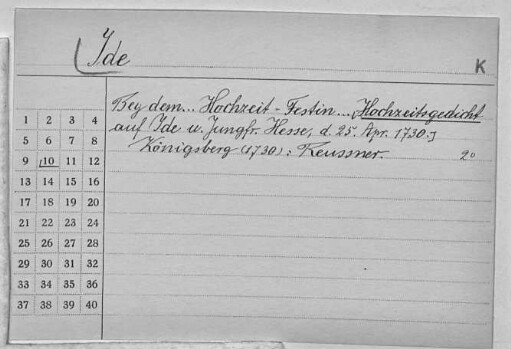 (Ide
K
Bey dem... Hochzeit-Festin... [Hochzeitsgedicht
auf Ide u. Jungfr. Hesse, d. 25. Apr. 1730.]
Königsberg (1730): Reussner. 2°
1 2 3 4
5 6 7 8
9 10 11 12
13 14 15 16
17 18 19 20
21 22 23 24
25 26 27 28
29 30 31 32
33 34 35 36
37 38 39 40